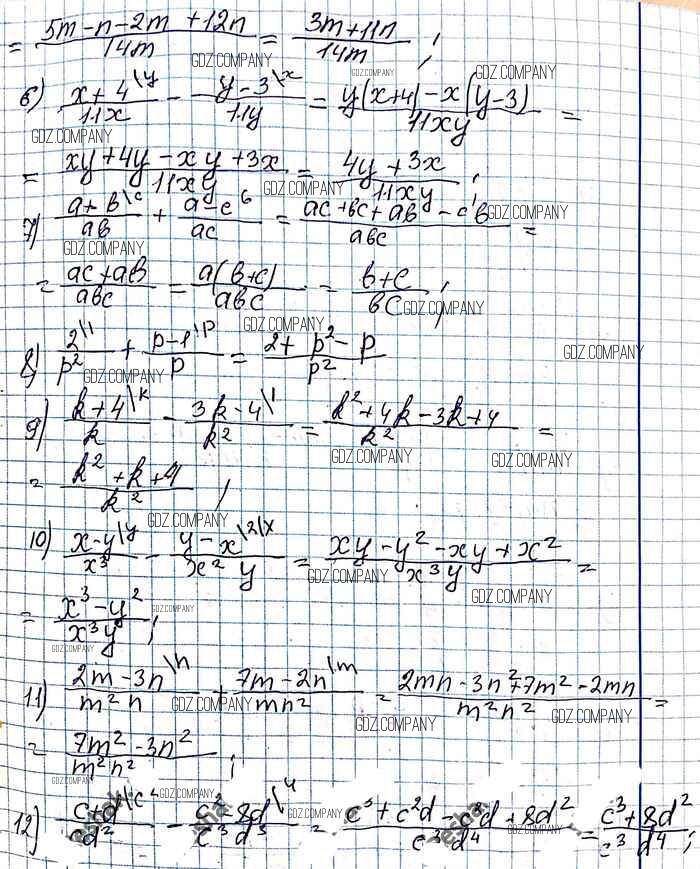 = (5m - n - 2m + 12n)/(14m) = (3m + 11n)/(14m) ;
6) (x + 4 \y)/(11x) - (y - 3 \x)/(11y) = (y(x+4) - x(y-3))/(11xy) =
= (xy + 4y - xy + 3x)/(11xy) = (4y + 3x)/(11xy) ;
7) (a + b \c)/(ab) + (a - c b)/(ac) = (ac + bc + ab - cb)/(abc) =
= (ac + ab)/(abc) = (a(b+c))/(abc) = (b + c)/(bc) ;
8) (2 \1)/(p²) + (p - 1 \p)/(p) = (2 + p² - p)/(p²)
9) (k + 4 \k)/(k) - (3k - 4 \1)/(k²) = (k² + 4k - 3k + 4)/(k²) =
= (k² + k + 4)/(k²) ;
10) (x - y \y)/(x³) - (y - x \x)/(x² y) = (xy - y² - xy + x²)/(x³y) =
= (x³ - y²)/(x³y) ;
11) (2m - 3n \n)/(m² n) + (7m - 2n \m)/(mn²) = (2mn - 3n² + 7m² - 2mn)/(m² n²) =
= (7m² - 3n²)/(m² n²) ;
12) (c + d)/(cd²) - (c² - 8d)/(c³ d³) = (c³ + c²d - c²d + 8d²)/(c³ d⁴) = (c³ + 8d²)/(c³ d⁴) ;
GDZ.COMPANY